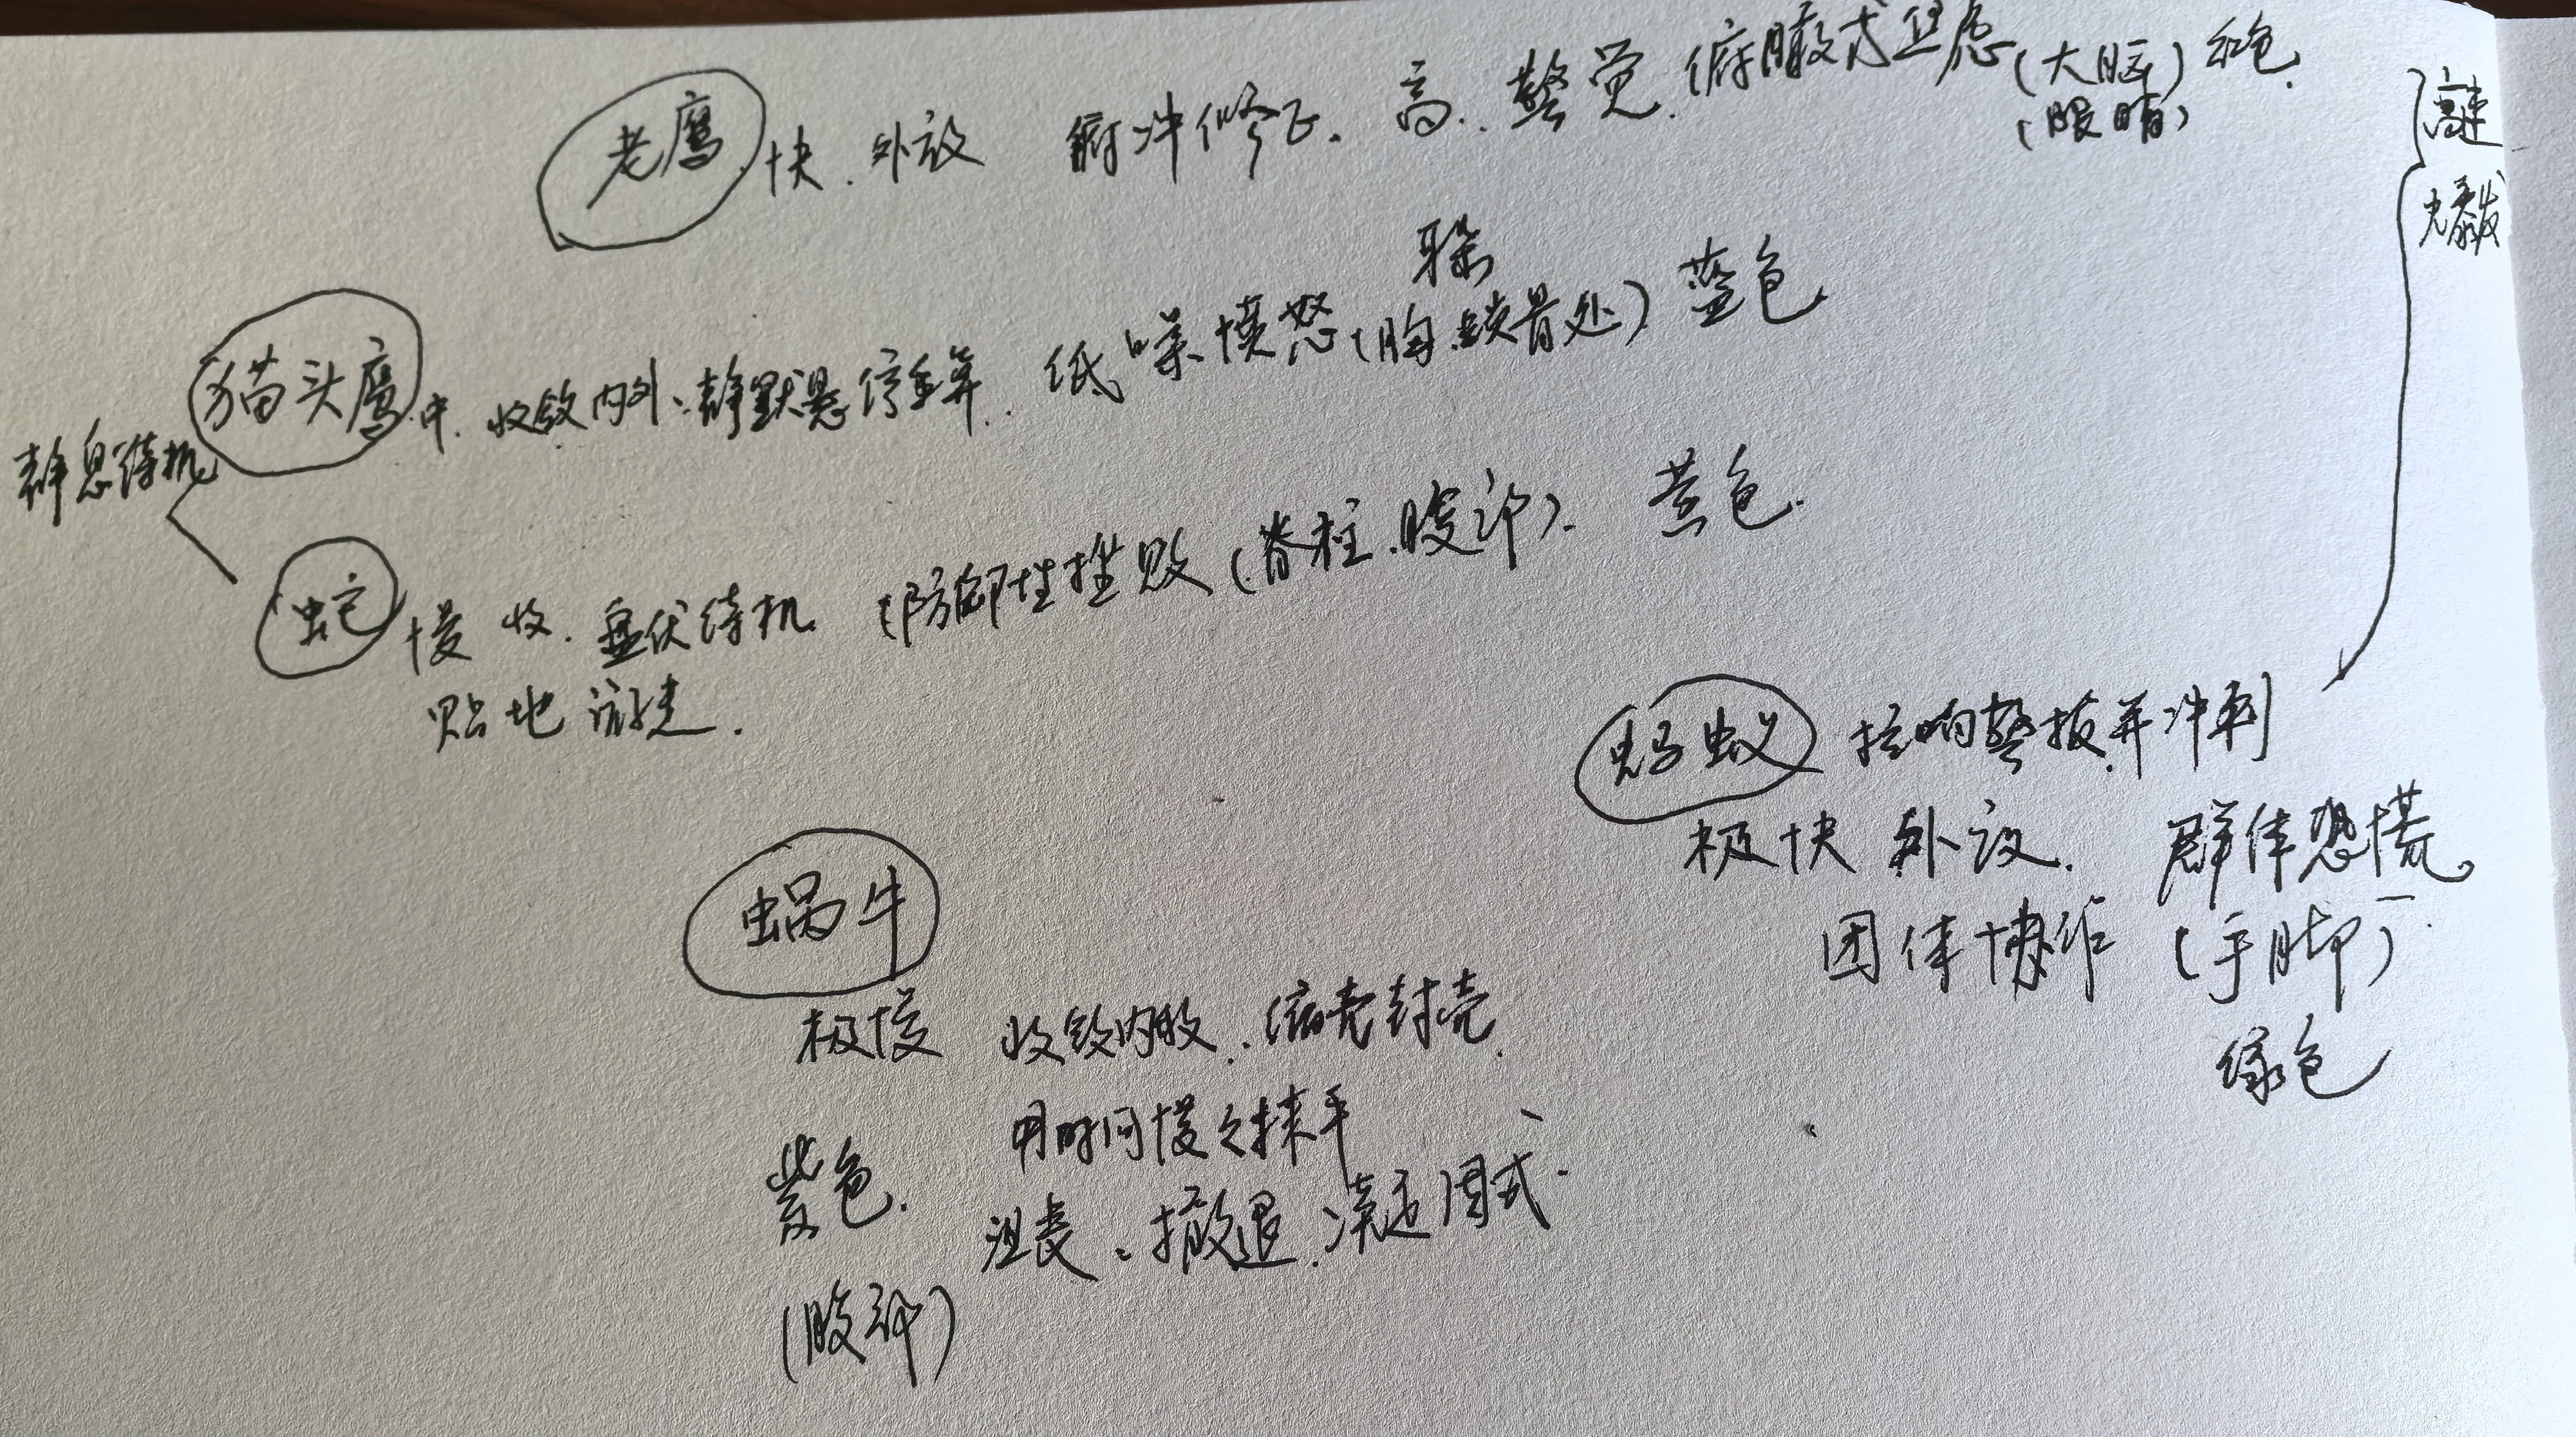 老鹰 快. 外放 俯冲修正. 高. 警觉. 俯瞰式焦虑 (大脑) 红色.
(眼睛)
高速
爆发
耳朵
猫头鹰 中. 收敛内外、静默悬停重算. 低噪愤怒 (胸.锁骨处) 蓝色.
静息待机
蛇 慢 收. 盘伏待机. 防御性挫败 (脊柱.腹部). 黄色.
贴地游走.
蚂蚁 拉响警报并冲刺
极快 外放. 群体恐慌。
团体协作 (手脚)
绿色
蜗牛
极慢 收敛内收. 缩壳封壳.
用时间慢之抹平
紫色. 沮丧、撤退.
(腹部)